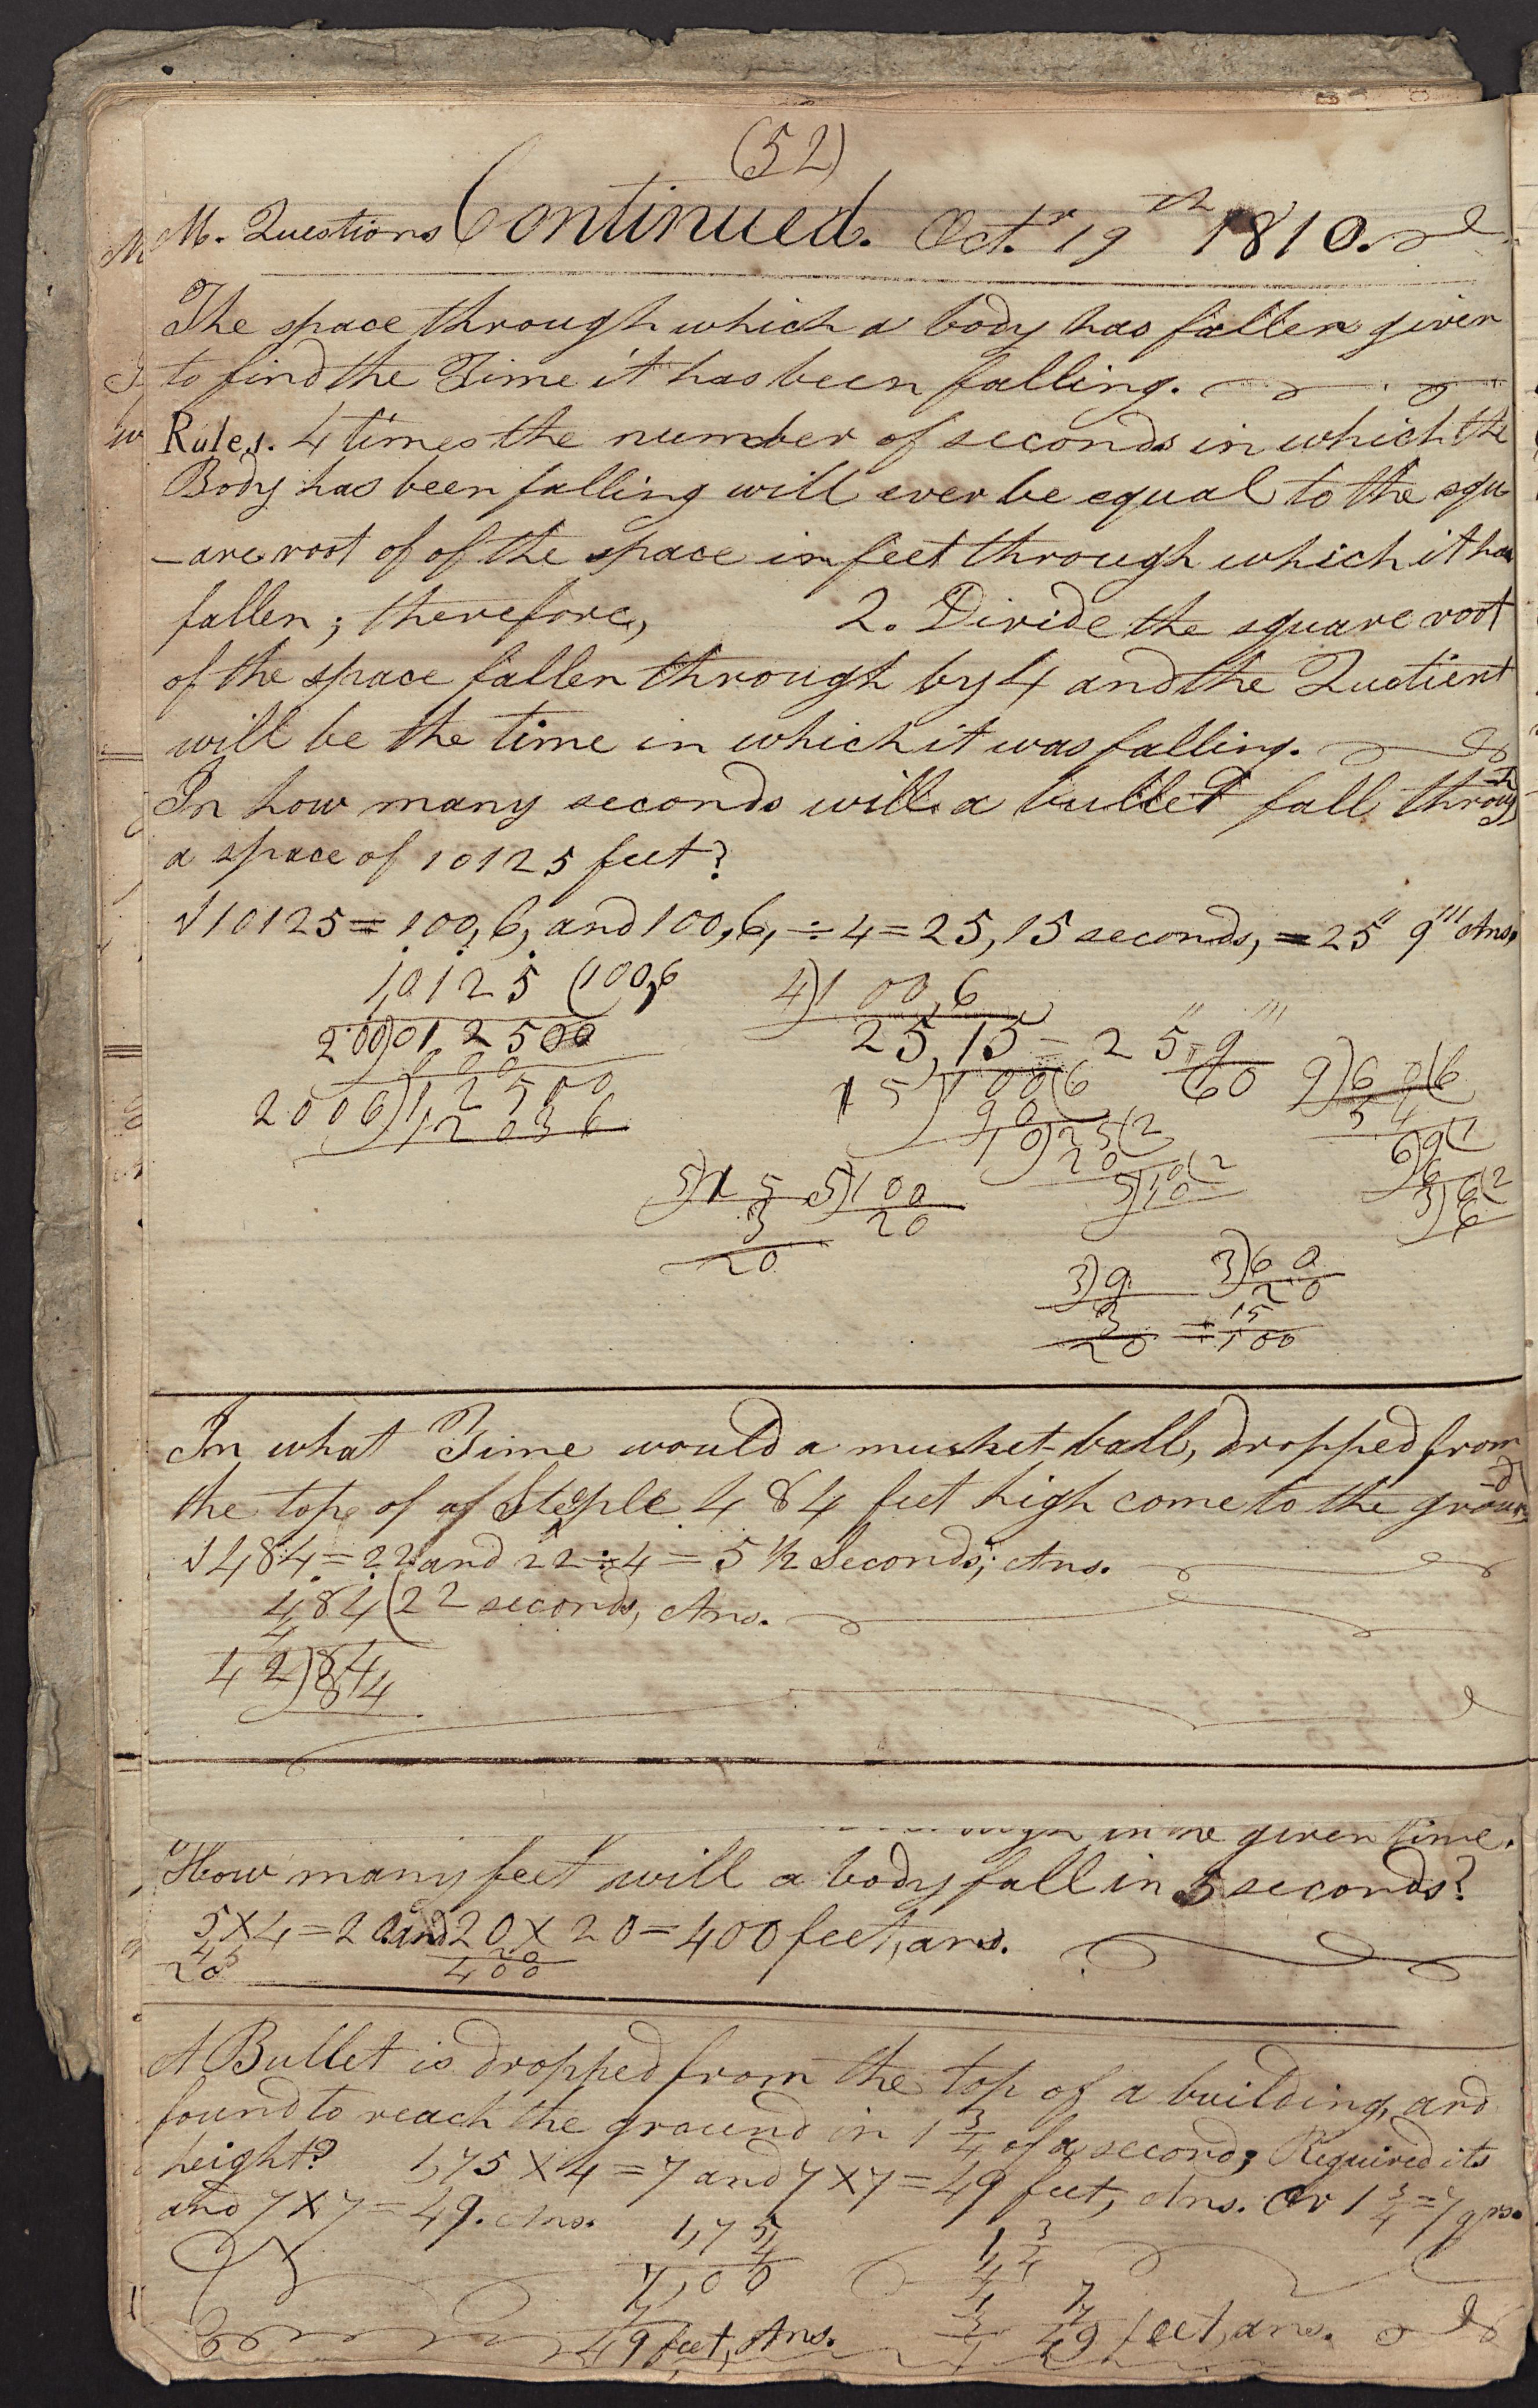 (52)
M. Questions Continued. Oct.r 19th 1810.
The space through which a body has fallen given
to find the Time it has been falling.
Rules. 4 times the number of seconds in which the
Body has been falling will ever be equal to the squ
-are root of of the space in feet through which it has
fallen; therefore, 2. Divide the square root
of the space fallen through by 4 and the Quotient
will be the time in which it was falling.
In how many seconds will a bullet fall through
a space of 10125 feet?
√10125 = 100,6, and 100,6, ÷ 4 = 25,15 seconds, = 25'' 9''' Ans.
1,0125 (100,6 4)100,6
200)012500 25,15 = 25'' 9'''
000 15)100(6 60 9)60(6
2006)12500 90 54
12036 10)15(2 6)9(1
20 6
5)15 5)100 5)10(2 3)6(2
3 20 10 6
20
3)9 3)60
3 20
20 = 15
100
In what Time would a musket-ball, dropped from
the top of a Steple 484 feet high come to the ground
√484 = 22 and 22 ÷ 4 = 5 1/2 Seconds; Ans.
484(22 seconds, Ans.
4
42)84
84
in the given time.
How many feet will a body fall in 5 seconds?
5 × 4 = 20 and 20 × 20 = 400 feet, ans.
4 20
20 400
A Bullet is dropped from the top of a building, and
found to reach the ground in 1 3/4 of a second; Required its
height? 1,75 × 4 = 7 and 7 × 7 = 49 feet, Ans. Or 1 3/4 = 7 qrs.
and 7 × 7 = 49. Ans. 1,75 1 3/4
4 4
7,00 7
7 7
49 feet, Ans. 49 feet, ans.